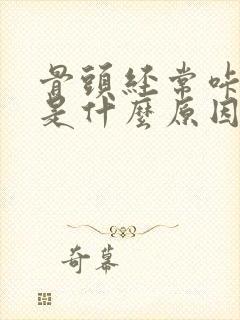 骨頭經常咔
是什麼原因
奇幕